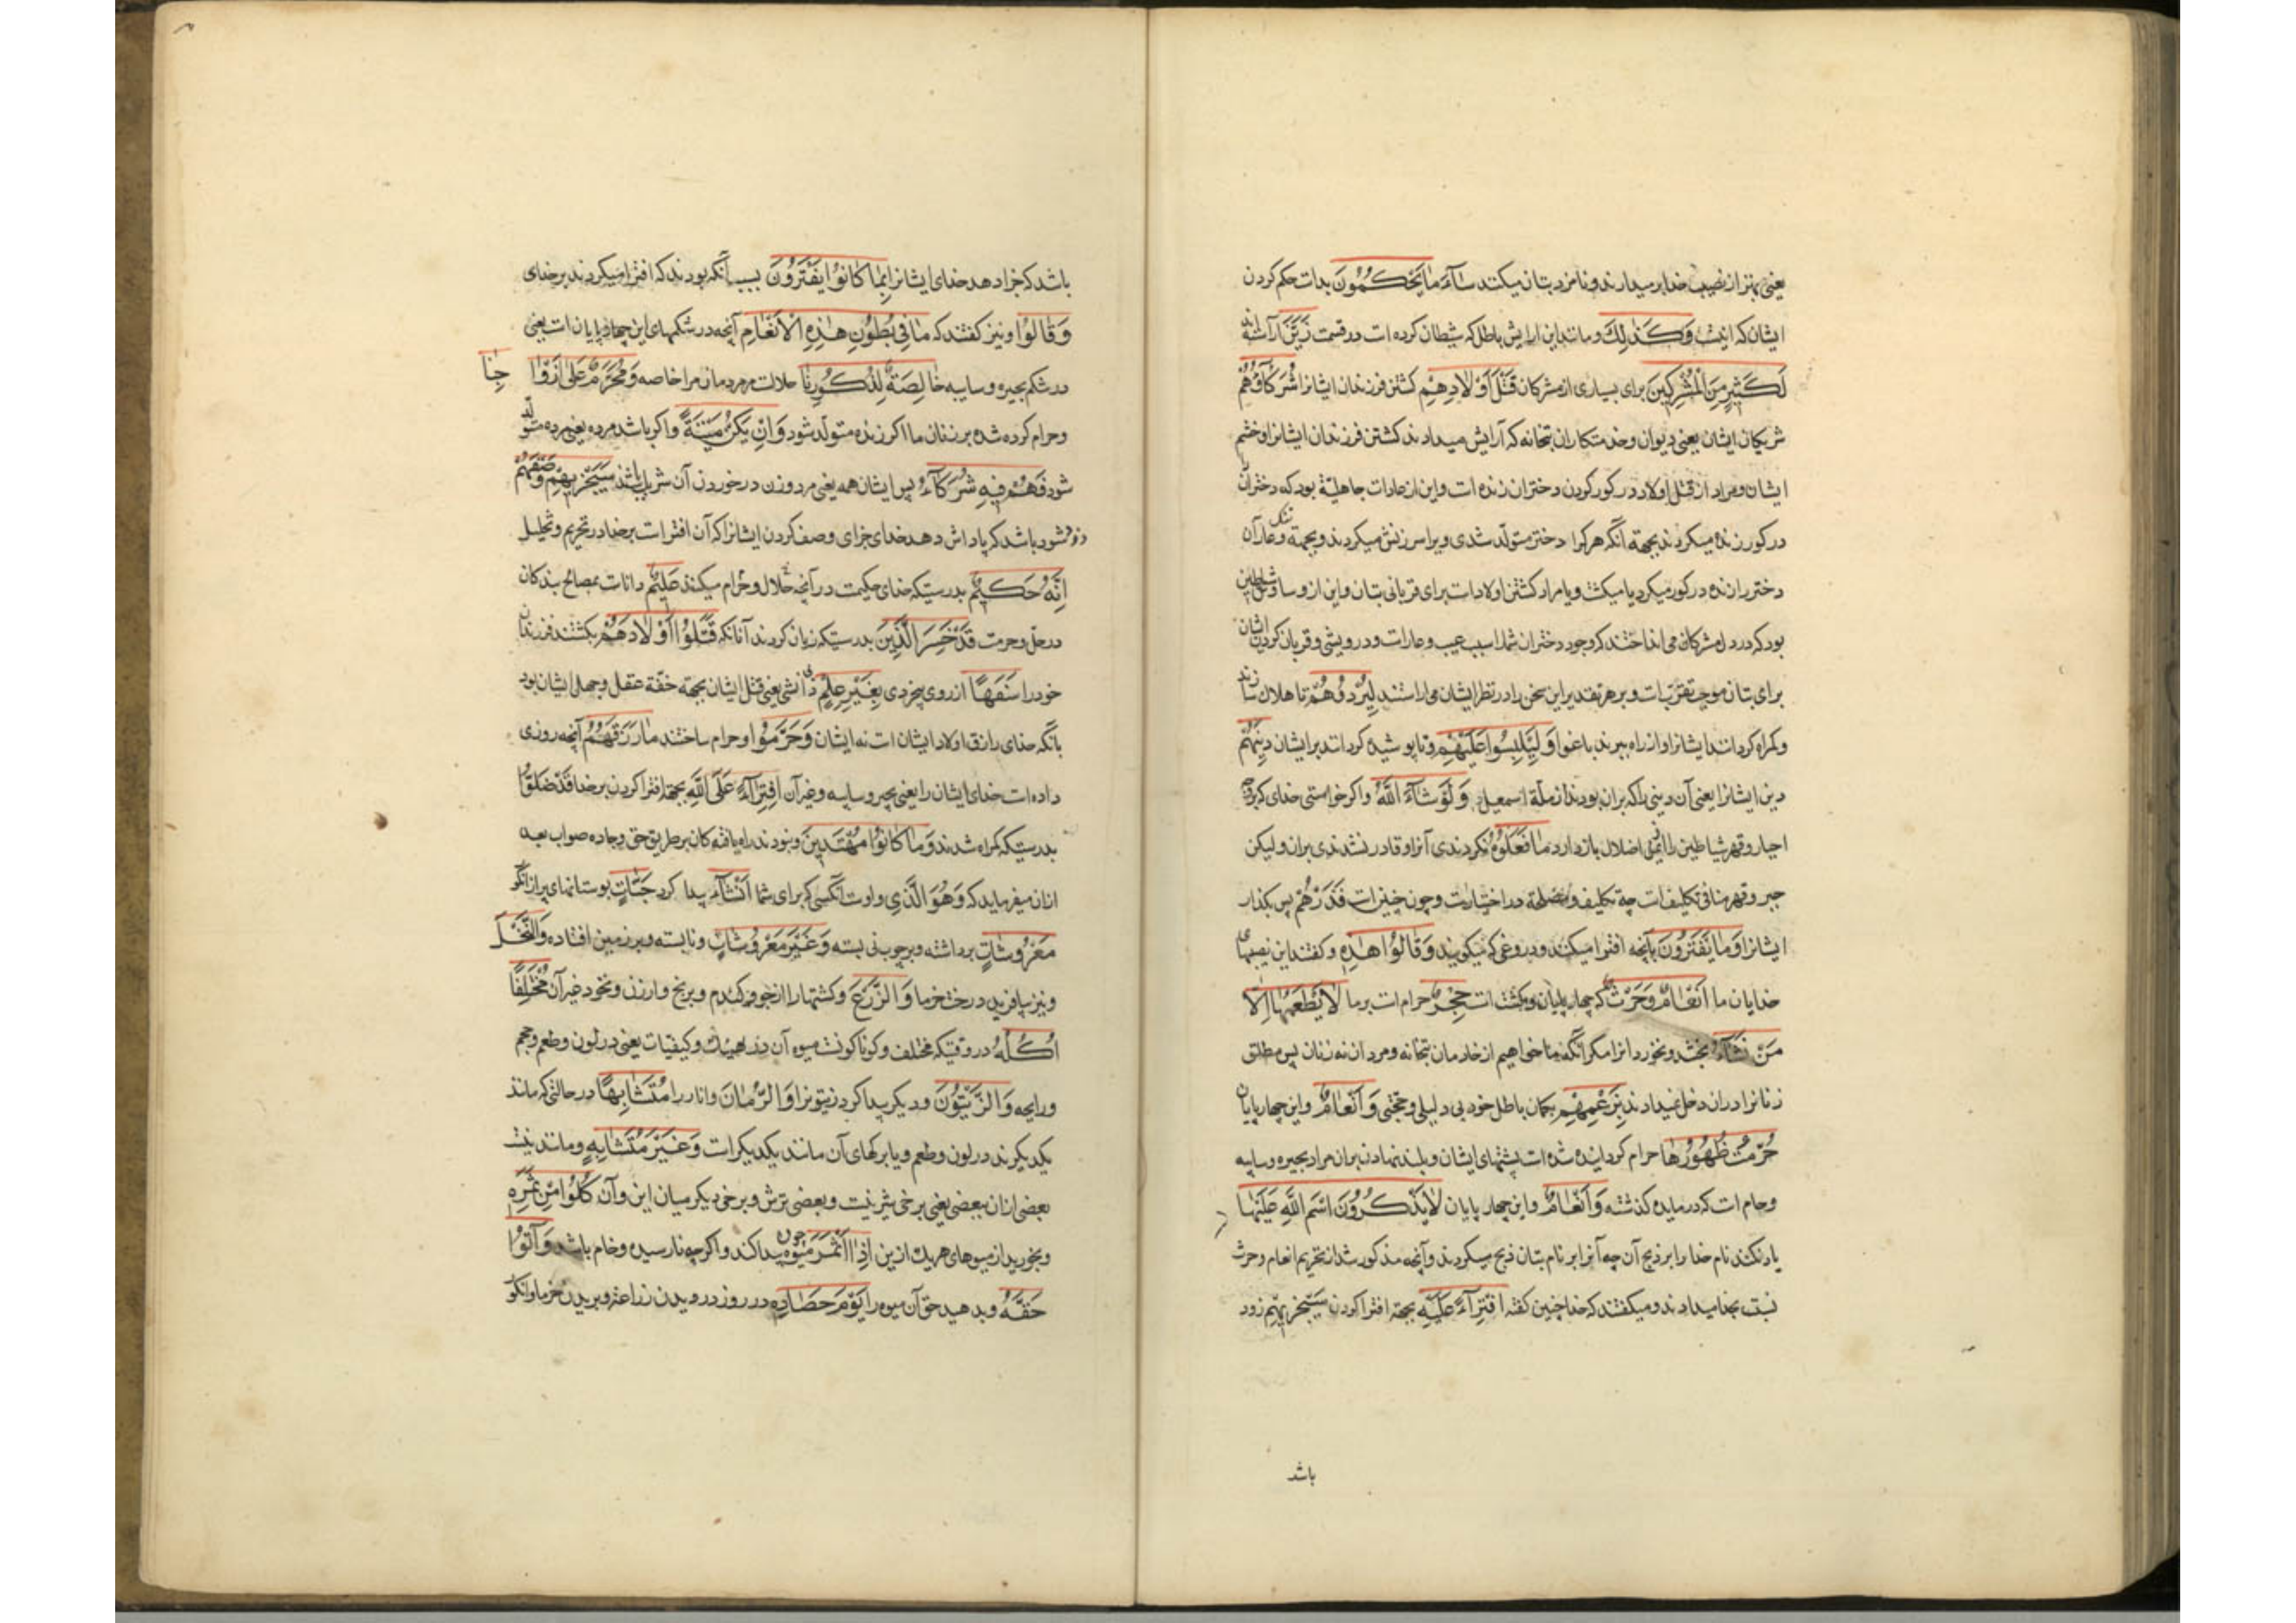 یعنی بهتر از نصیب خدا برمیدارند و نامزد بتان میکنند سَآءَ مَا یَحْکُمُونَ بداست حکم کردن
ایشان که اینست وَکَذٰلِکَ و مانند این ارایش باطل که شیطان کرده است در قسمت زَیَّنَ آراسته اند
لِکَثِیرٍ مِنَ الْمُشْرِکِینَ برای بسیاری از مشرکان قَتْلَ اَوْلَادِهِمْ کشتن فرزندان ایشانرا شُرَکَآؤُهُمْ
شریکان ایشان یعنی دیوان و خدمتکاران بتخانه که آرایش میدادند کشتن فرزندان ایشانرا و خشم
ایشان و مراد از قتل اولاد در کور کردن دختران زنده است و این از عادات جاهلیّة بود که دخترانرا
در کور زنده میکردند بجهة آنکه هرکرا دختر متولّد شدی ویرا سرزنش میکردند و بجهة ننک و عار آن
دختر را زنده در کور میکرد یا میکشت و یا مراد کشتن اولاد است برای قربانی بتان و این از وساوس شیاطین
بود که در دل مشرکان می انداختند که وجود دختران شما را سبب عیب و عار است و درویشی و قربان کردن ایشان
برای بتان موجب تقرّبست و بر هر تقدیر این سخن را در نظر ایشان می اراستند لِیُرْدُوهُمْ تا هلاک سازند
و کمراه کردانند ایشانرا و از راه ببرند باغوا وَلِیَلْبِسُوا عَلَیْهِمْ و تا پوشیده کردانند بر ایشان دِینَهُمْ
دین ایشانرا یعنی آن دینی را که بران بودند از ملّة اسمعیل وَلَوْ شَآءَ اللّٰهُ و اکر خواستی خدای که بوجه
اجبار و قهر شیاطین را از این اضلال باز دارد مَا فَعَلُوهُ نکردندی آنرا و قادر نشدندی بران ولیکن
جبر و قهر منافی تکلیفست چه تکلیف در اختیارست و چون چنین است فَذَرْهُمْ پس بکذار
ایشانرا وَمَا یَفْتَرُونَ بآنچه افترا میکنند و دروغی که میکویند وَقَالُوا هٰذِهِ و کفتند این نصیبهای
خدایان ما اَنْعَامٌ وَحَرْثٌ که چهارپایان و کشت است حِجْرٌ حرام است بر ما لَا یَطْعَمُهَا اِلَّا
مَنْ نَشَآءُ نچشد و نخورد انرا مکر آنکه ما خواهیم از خادمان بتخانه و مردان نه زنان پس مطلق
زنانرا دران دخل نمیدادند بِزَعْمِهِمْ بکمان باطل خود بی دلیلی و حجّتی وَاَنْعَامٌ و این چهارپایان
حُرِّمَتْ ظُهُورُهَا حرام کردانیده شده است پشتهای ایشان و بار نهادن بران مراد بحیره و سایبه
و حام است که در مایده کذشته وَاَنْعَامٌ و این چهارپایان لَا یَذْکُرُونَ اسْمَ اللّٰهِ عَلَیْهَا
یاد نکنند نام خدا را بر ذبح آن چه آنرا بر نام بتان ذبح میکردند و آنچه مذکور شد از تحریم انعام و حرث
نسبت بخدا میدادند و میکفتند که خدا چنین کفته افْتِرَآءً عَلَیْهِ بجهة افترا کردن سَیَجْزِیهِمْ زود
باشد
باشد که جزا دهد خدای ایشانرا بِمَا کَانُوا یَفْتَرُونَ بسبب آنکه بودند که افترا میکردند بر خدای
وَقَالُوا و نیز کفتند که مَا فِی بُطُونِ هٰذِهِ الْاَنْعَامِ آنچه در شکمهای این چهارپایان است یعنی
در شکم بحیره و سایبه خَالِصَةٌ لِذُکُورِنَا حلالست مر مردمان ما را خاصه وَمُحَرَّمٌ عَلٰی اَزْوَاجِنَا
و حرام کرده شده بر زنان ما اکر زنده متولّد شود وَاِنْ یَکُنْ مَیْتَةً و اکر باشد مرده یعنی مرده متولّد
شود فَهُمْ فِیهِ شُرَکَآءُ پس ایشان همه یعنی مرد و زن در خوردن آن شریک باشند سَیَجْزِیهِمْ وَصْفَهُمْ
زود شود باشد که پاداش دهد خدای جزای وصف کردن ایشانرا که آن افتراست بر خدا در تحریم و تحلیل
اِنَّهُ حَکِیمٌ بدرستیکه خدای حکیمست در آنچه حلال و حرام میکند عَلِیمٌ داناست بمصالح بندکان
در حلّ و حرمت قَدْ خَسِرَ الَّذِینَ بدرستیکه زیان کردند آنانکه قَتَلُوا اَوْلَادَهُمْ بکشتند فرزندان
خود را سَفَهًا از روی بیخردی بِغَیْرِ عِلْمٍ بی دانشی یعنی قتل ایشان بجهة خفّة عقل و جهل ایشان بود
بآنکه خدای رازق اولاد ایشان است نه ایشان وَحَرَّمُوا و حرام ساختند مَا رَزَقَهُمُ آنچه روزی
داده است خدای ایشان را یعنی بحیره و سایبه و غیر آن افْتِرَآءً عَلَی اللّٰهِ بجهة افترا کردن بر خدا قَدْ ضَلُّوا
بدرستیکه کمراه شدند وَمَا کَانُوا مُهْتَدِینَ و نبودند راه یافته کان بر طریق حق و جاده صواب بعد
ازان میفرماید که وَهُوَ الَّذِی و اوست آنکسی که برای شما اَنْشَاَ پیدا کرد جَنَّاتٍ بوستانهای پر از انکور
مَعْرُوشَاتٍ برداشته و بر چوب نی بسته وَغَیْرَ مَعْرُوشَاتٍ و نابسته و بر زمین افتاده وَالنَّخْلَ
و نیز بیافرید درخت خرما وَالزَّرْعَ و کشتها را از جو و کندم و برنج و ارزن و نخود و غیر آن مُخْتَلِفًا
اُکُلُهُ در وقتیکه مختلف و کوناکونست میوه آن در هیئت و کیفیات یعنی در لون و طعم و حجم
و رایحه وَالزَّیْتُونَ و دیکر پیدا کرد زیتونرا وَالرُّمَّانَ و انار را مُتَشَابِهًا در حالتی که مانند
یکدیکرند در لون و طعم و یا برکهای آن مانند یکدیکر است وَغَیْرَ مُتَشَابِهٍ و مانند نیست
بعضی ازان ببعضی یعنی برخی شیرینست و بعضی ترش و برخی دیکر میان این و آن کُلُوا مِنْ ثَمَرِهِ
و بخورید از میوهای هر یک ازین اِذَا اَثْمَرَ چون میوه پیدا کند و اکرچه نارسیده و خام باشد وَآتُوا
حَقَّهُ و بدهید حق آن میوه را یَوْمَ حَصَادِهِ در روز درویدن زراعة و بریدن خرما و انکور